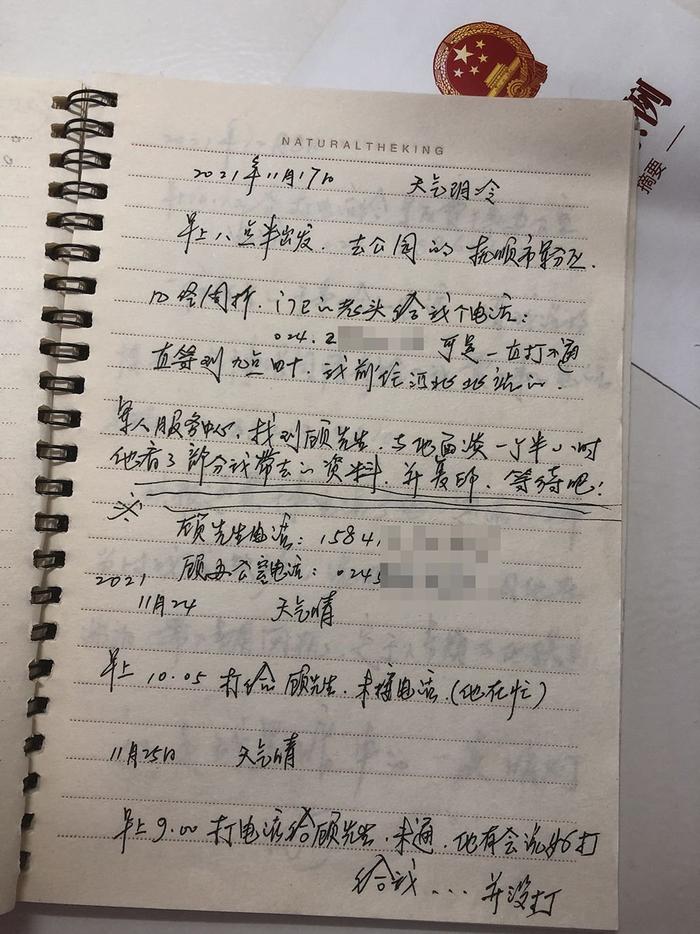 NATURALTHEKING
例
摘要一
2021年11月17日 天气阴冷
早上八点半出发、去公园的抚顺市军分区.
几经周折、门卫的老头给我个电话:
024.2 可是一直打不通
直等到九点四十、我前往河北北站的
军人服务中心、找到顾先生、与他面谈一个半小时
他看了部分我带去的资料、并复印、等待吧!
顾先生电话: 15841
2021 顾办公室电话: 0245
11月24 天气晴
早上10.05 打给顾先生、未接电话.(他在忙)
11月25日 天气晴
早上9.00打电话给顾先生、未通、他有会说好打
给我...并没打